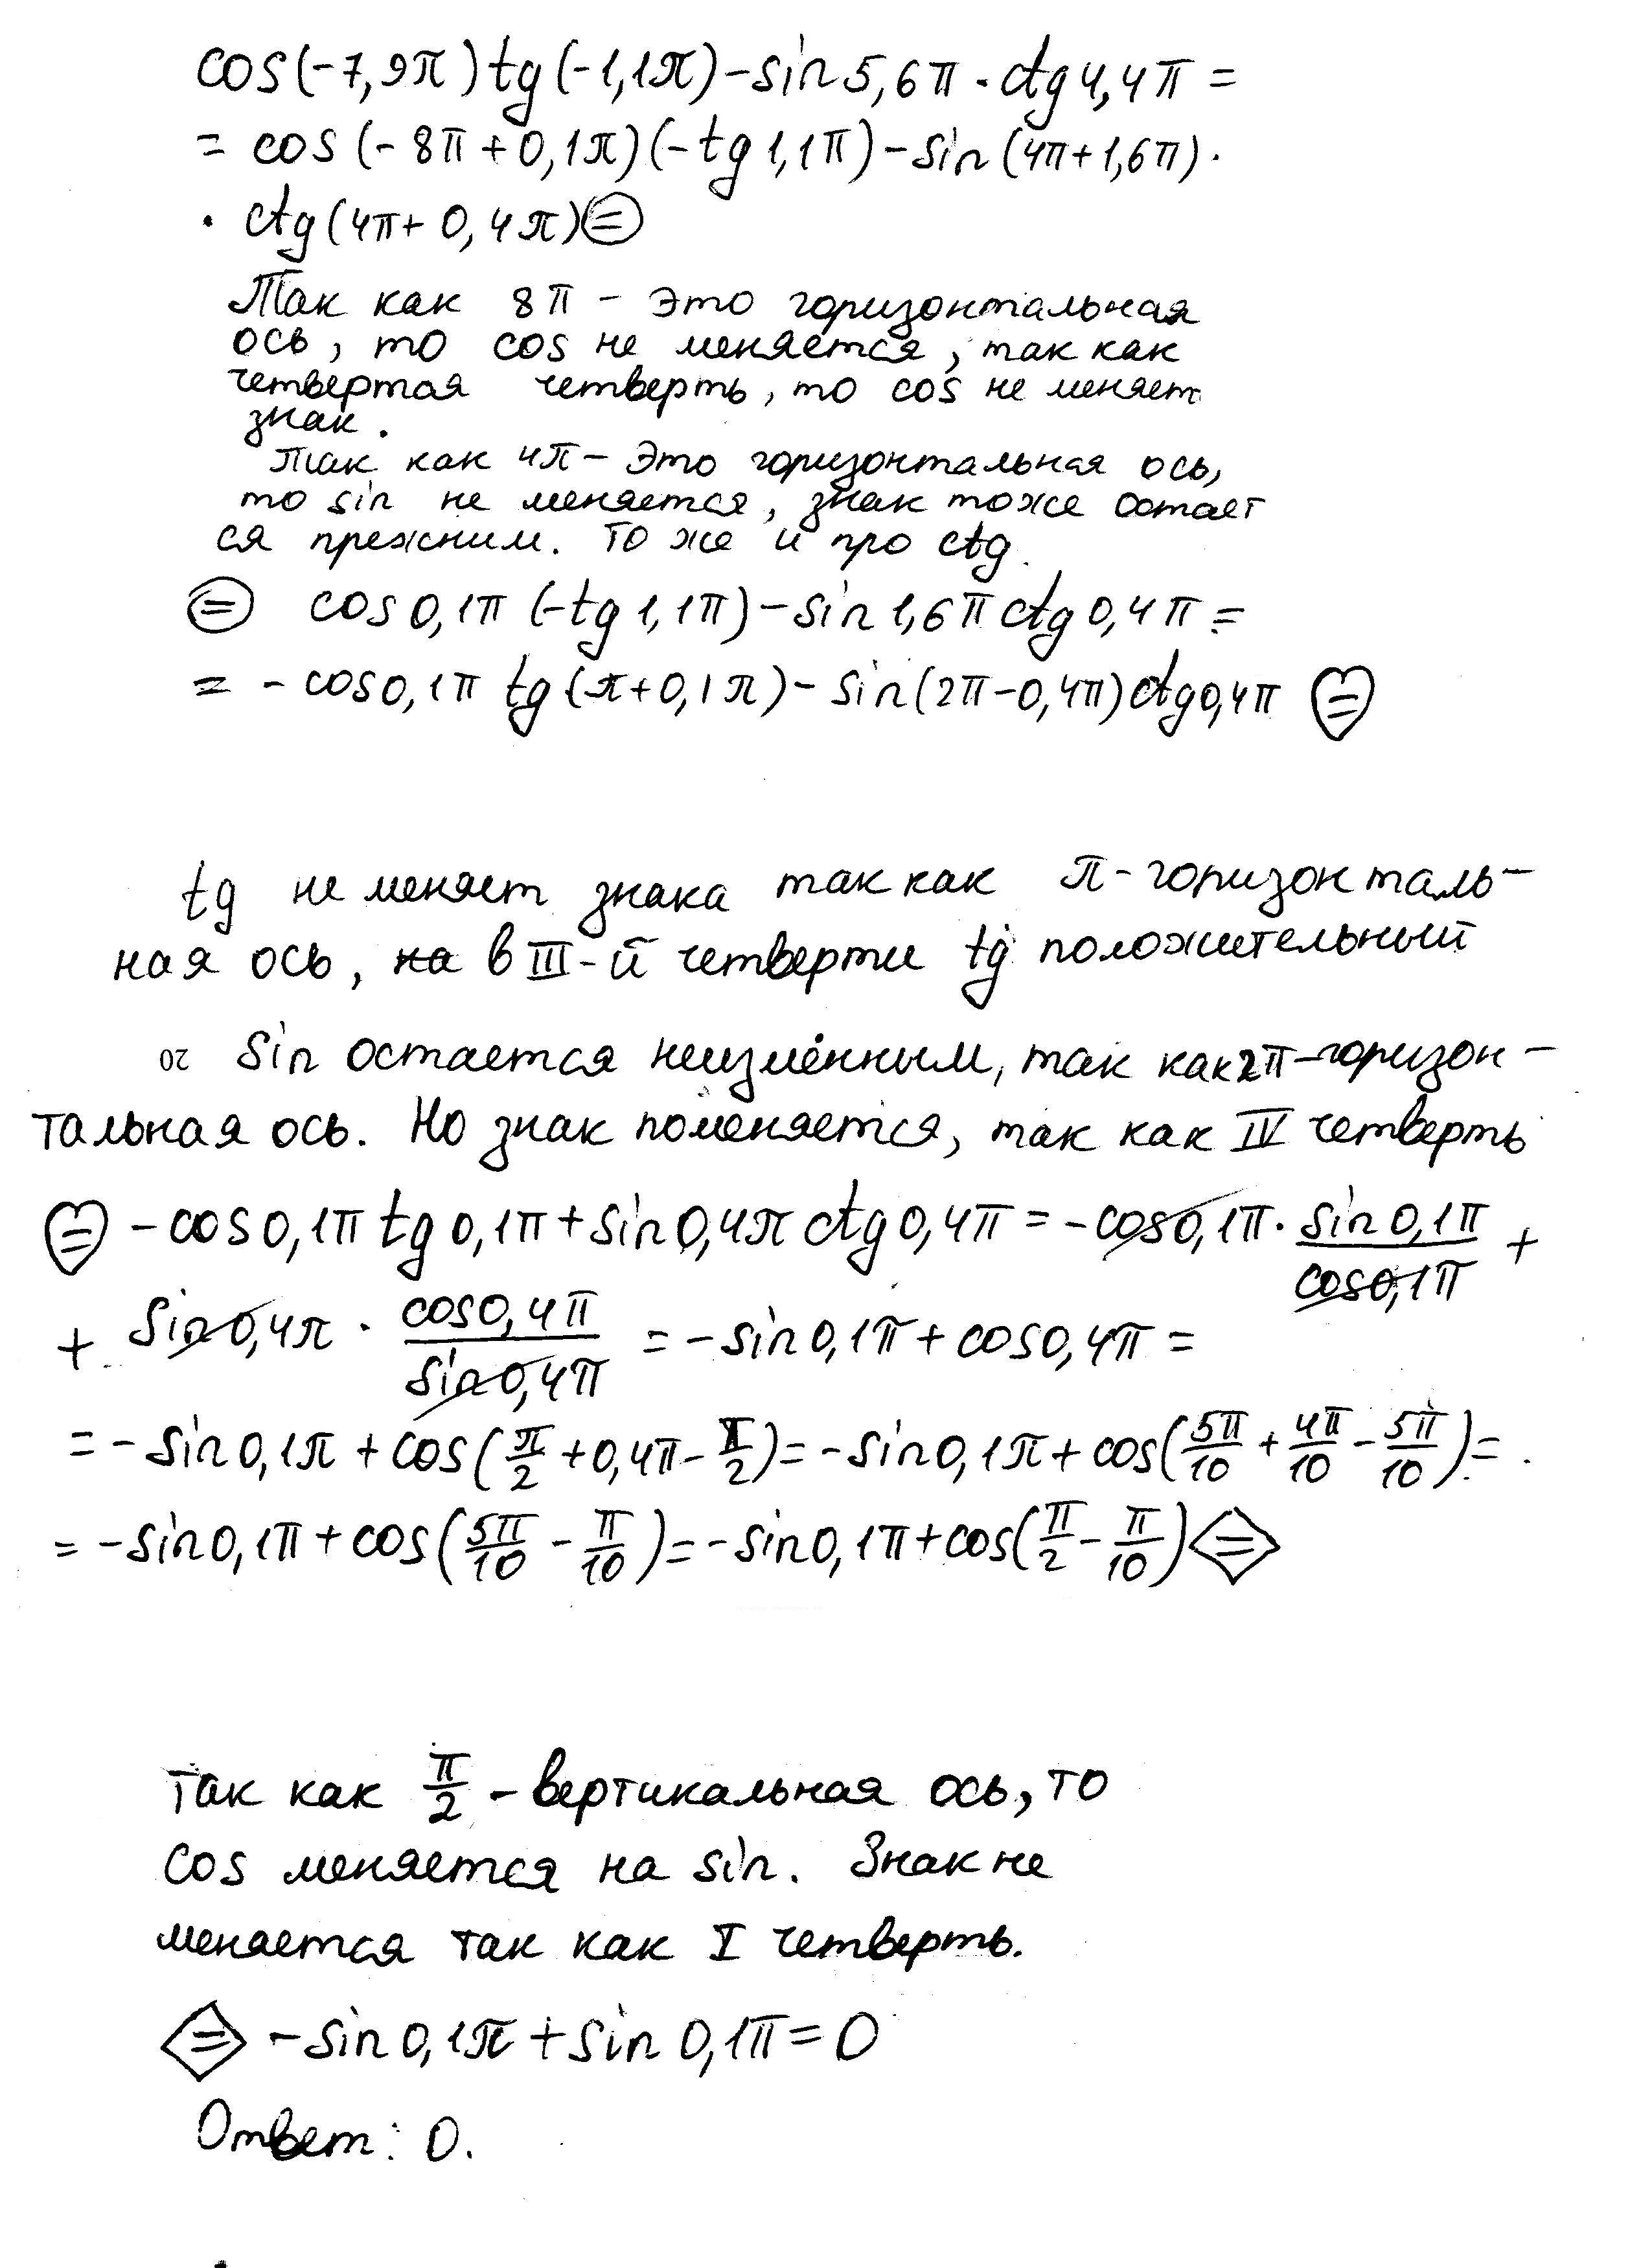 cos(-7,9π)tg(-1,1π)-sin5,6π·ctg4,4π=
= cos(-8π+0,1π)(-tg1,1π)-sin(4π+1,6π)·
· ctg(4π+0,4π)=
Так как 8π - это горизонтальная
ось, то cos не меняется, так как
четвертая четверть, то cos не меняет
знак.
Так как 4π - это горизонтальная ось,
то sin не меняется, знак тоже остает
ся прежним. То же и про ctg.
= cos0,1π(-tg1,1π)-sin1,6πctg0,4π=
= -cos0,1π tg(π+0,1π)-sin(2π-0,4π)ctg0,4π =
tg не меняет знака так как π-горизонталь-
ная ось, на в III-й четверти tg положительный
20 sin остается неизменным, так как 2π-горизон-
тальная ось. Но знак поменяется, так как IV четверть
= -cos0,1π tg0,1π+sin0,4π ctg0,4π = -cos0,1π·sin0,1π/cos0,1π +
+ sin0,4π · cos0,4π/sin0,4π = -sin0,1π+cos0,4π =
= -sin0,1π+cos(π/2+0,4π-π/2)=-sin0,1π+cos(5π/10+4π/10-5π/10)=
= -sin0,1π+cos(5π/10-π/10)=-sin0,1π+cos(π/2-π/10) =
Так как π/2 - вертикальная ось, то
cos меняется на sin. Знак не
меняется так как I четверть.
= -sin0,1π+sin0,1π=0
Ответ: 0.